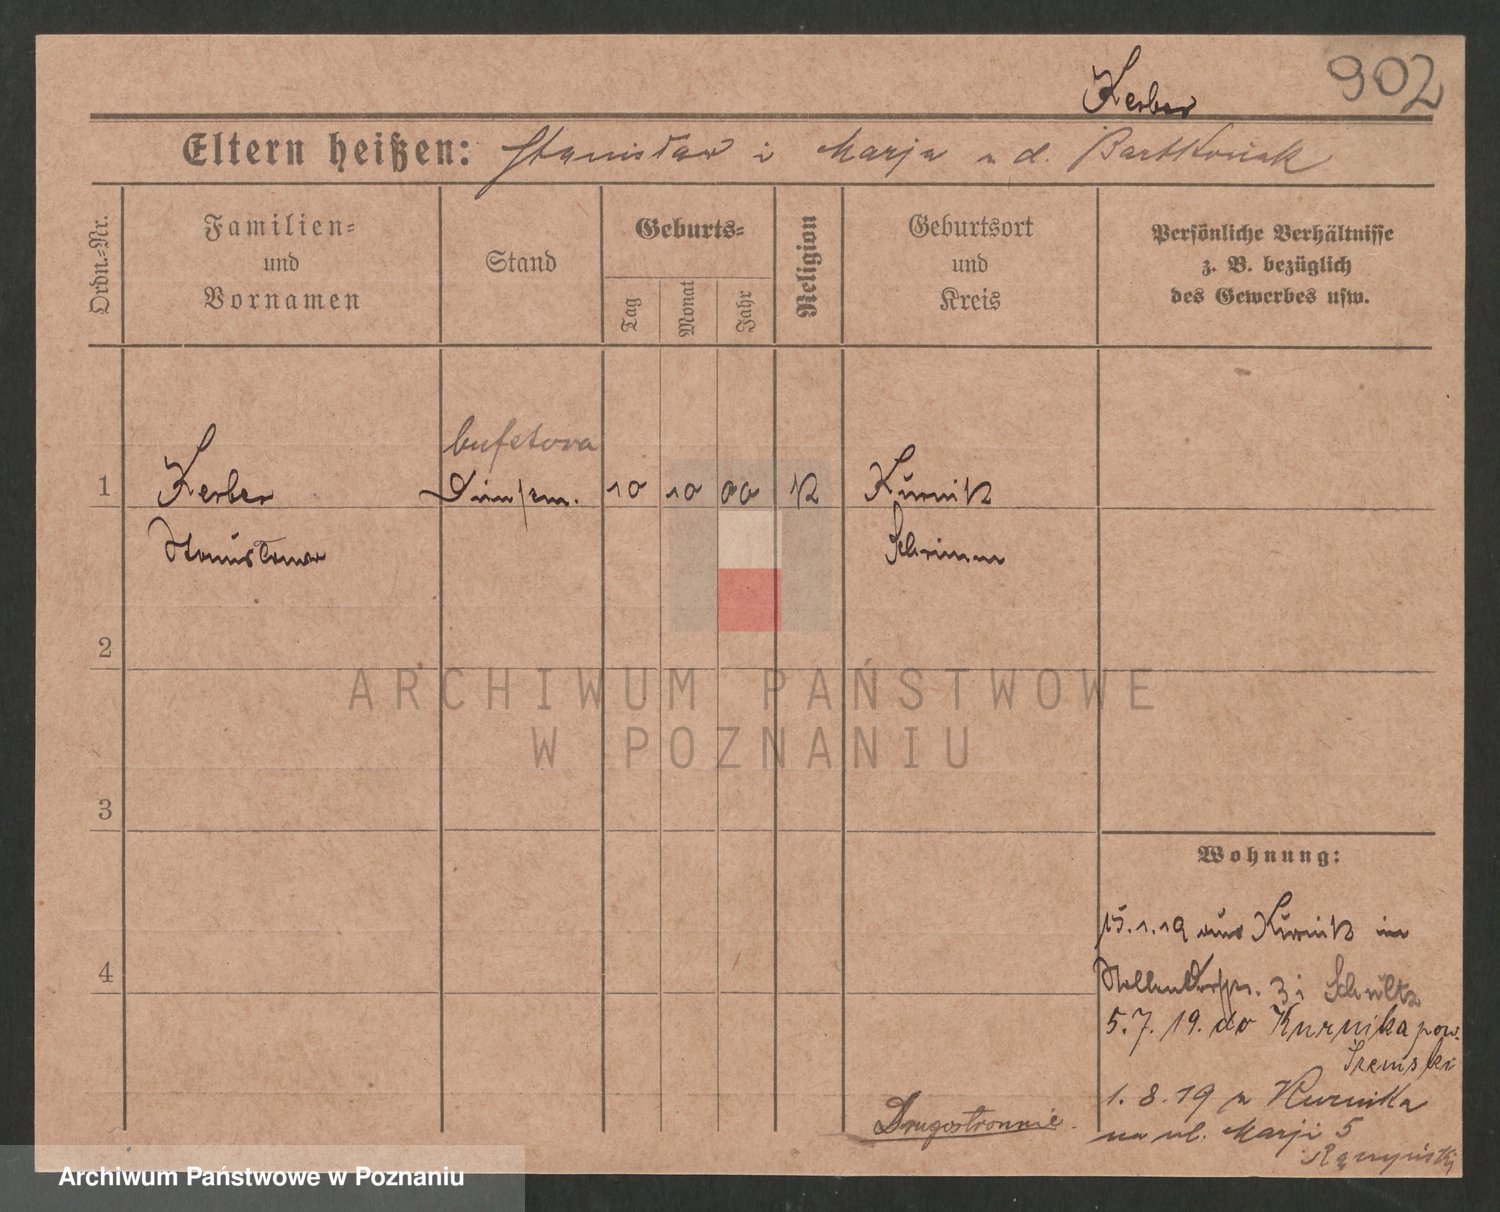 902
Kerber
Eltern heißen: Stanisław i Marja z d. Bartkowiak
Ordn.-Nr.
Familien-
und
Vornamen
Stand
Geburts-
Tag
Monat
Jahr
Religion
Geburtsort
und
Kreis
Persönliche Verhältnisse
z. B. bezüglich
des Gewerbes usw.
bufetowa
1 Kerber 10 10 00 K Kurnik
Stanisława Schrimm
2
3
4
Wohnung:
15.1.19 aus Kurnik in
3 i Schultz
5.7.19. do Kurnika pow.
Śremski
1.8.19 z Kurnika
na ul. Marji 5
Drugostronnie.
ARCHIWUM PAŃSTWOWE
W POZNANIU
Archiwum Państwowe w Poznaniu